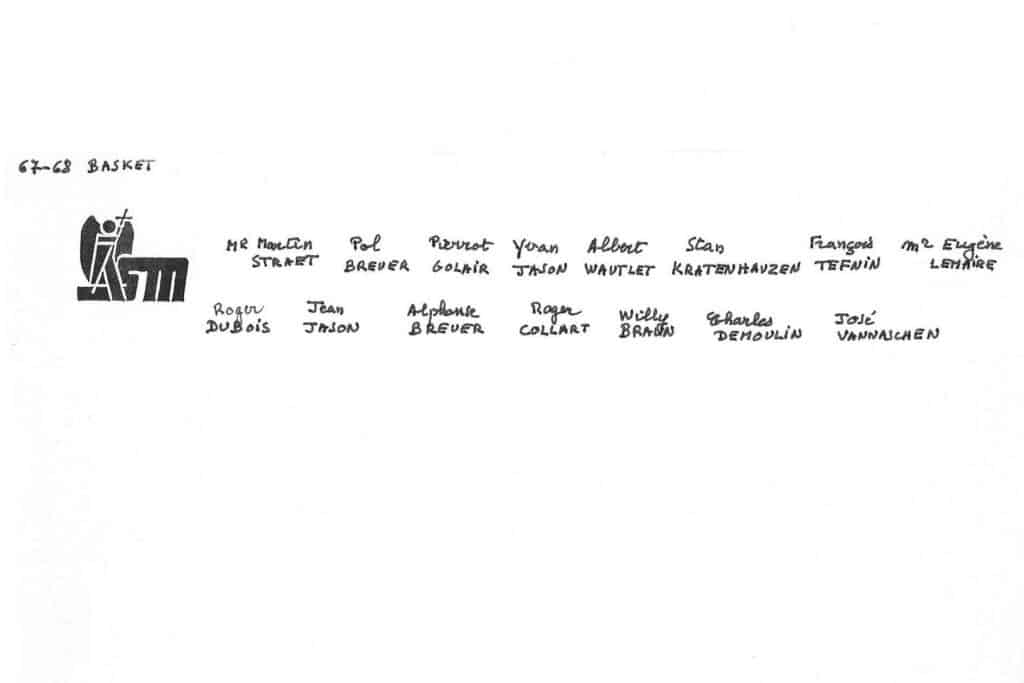 67-68 BASKET
ASM
MR Martin Pol Pierrot Yvan Albert Stan François Mr Eugène
STRAET BREUER GOLAIR JASON WAUTLET KRATENHAUZEN TEFNIN LEMAIRE
Roger Jean Alphonse Roger Willy Charles José
DUBOIS JASON BREUER COLLART BRAUN DEMOULIN VANNAICHEN